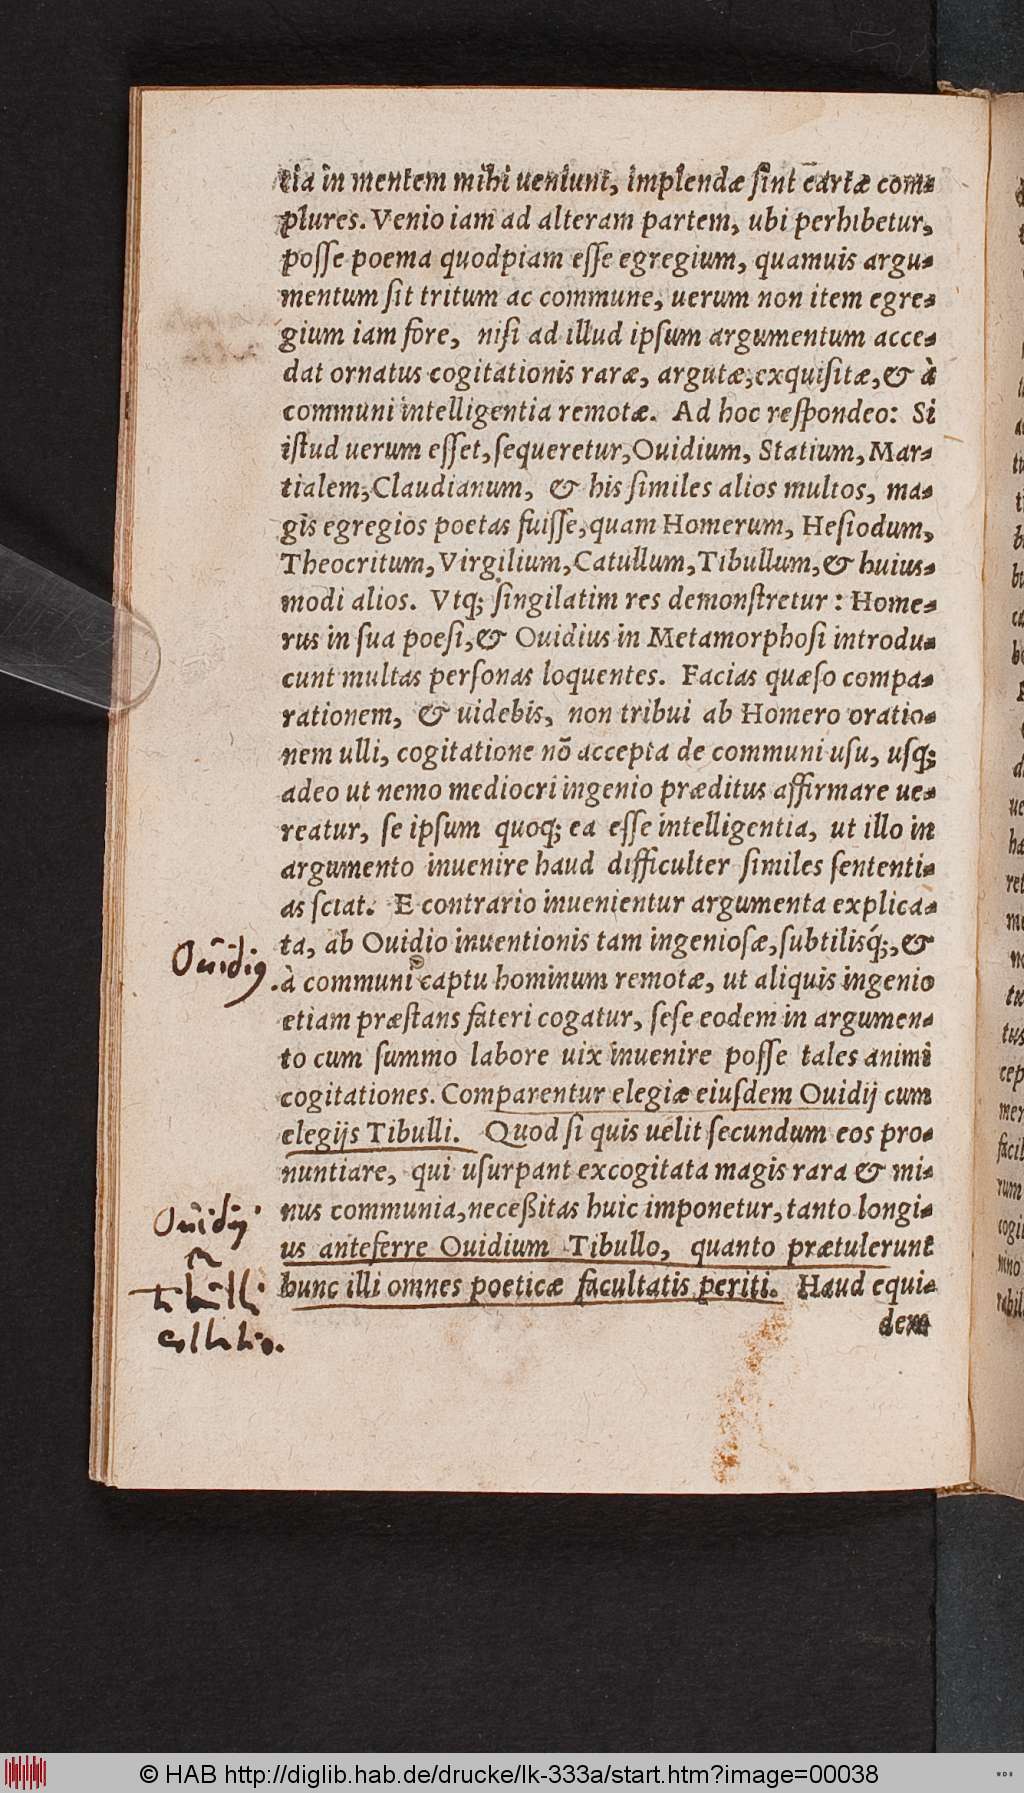 tia in mentem mihi ueniunt, implendæ sint cartæ com-
plures. Venio iam ad alteram partem, ubi perhibetur,
posse poema quodpiam esse egregium, quamuis argu-
mentum sit tritum ac commune, uerum non item egre-
gium iam fore, nisi ad illud ipsum argumentum acce-
dat ornatus cogitationis raræ, argutæ, exquisitæ, & à
communi intelligentia remotæ. Ad hoc respondeo: Si
istud uerum esset, sequeretur, Ouidium, Statium, Mar-
tialem, Claudianum, & his similes alios multos, ma-
gis egregios poetas fuisse, quam Homerum, Hesiodum,
Theocritum, Virgilium, Catullum, Tibullum, & huius-
modi alios. Vtq; singilatim res demonstretur: Home-
rus in sua poesi, & Ouidius in Metamorphosi introdu-
cunt multas personas loquentes. Facias quæso compa-
rationem, & uidebis, non tribui ab Homero oratio-
nem ulli, cogitatione nõ accepta de communi usu, usq;
adeo ut nemo mediocri ingenio præditus affirmare ue-
reatur, se ipsum quoq; ea esse intelligentia, ut illo in
argumento inuenire haud difficulter similes sententi-
as sciat. E contrario inuenientur argumenta explica-
ta, ab Ouidio inuentionis tam ingeniosæ, subtilisq́;, &
à communi captu hominum remotæ, ut aliquis ingenio
etiam præstans fateri cogatur, sese eodem in argumen-
to cum summo labore uix inuenire posse tales animi
cogitationes. Comparentur elegiæ eiusdem Ouidij cum
elegijs Tibulli. Quod si quis uelit secundum eos pro-
nuntiare, qui usurpant excogitata magis rara & mi-
nus communia, neceßitas huic imponetur, tanto longi-
us anteferre Ouidium Tibullo, quanto prætulerunt
hunc illi omnes poeticæ facultatis periti. Haud equi-
dem
Ouidiꝰ.
Ouidij
&
tibulli
collatio.
© HAB http://diglib.hab.de/drucke/lk-333a/start.htm?image=00038